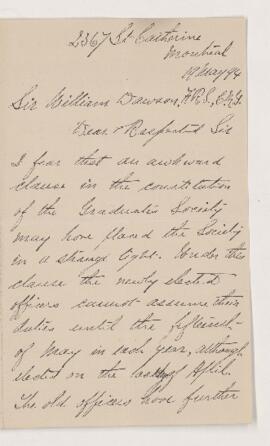 2367 St Catherine
Montréal
19 May 94
Sir William Dawson, F.R.S., C.M.G.
Dear & Respected Sir
I fear that an awkward
clause in the constitution
of the Graduates Society
may have placed the Society
in a strange light. Under this
clause the newly elected
officers cannot assume their
duties until the fifteenth
of May in each year, although
elected on the last of April.
The old officers have further